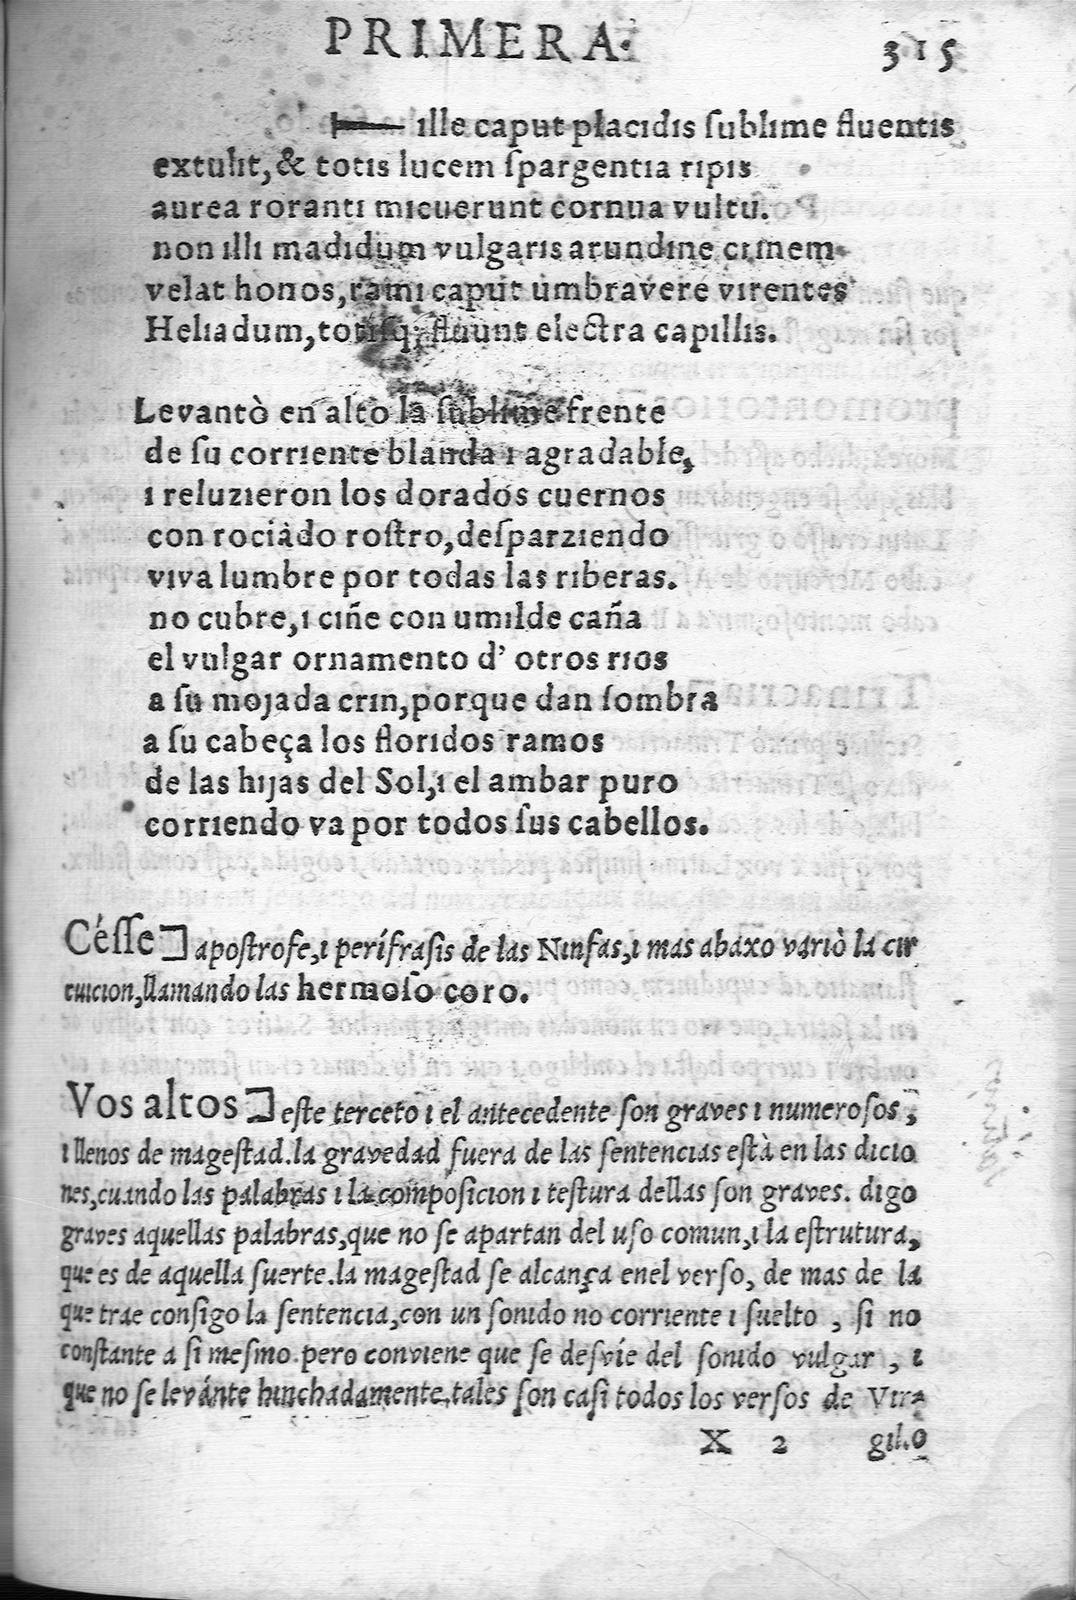 PRIMERA.
315
ille caput placidis ſublime fluentis
extulit, & totis lucem ſpargentia ripis
aurea roranti micuerunt cornua vultu.
non illi madidum vulgaris arundine crinem
velat honos, rami caput umbravere virentes
Heliadum, totiſq; fluunt electra capillis.
Levantò en alto la ſublime frente
de ſu corriente blanda i agradable,
i reluzieron los dorados cuernos
con rociàdo roſtro, deſparziendo
viva lumbre por todas las riberas.
no cubre, i ciñe con umilde caña
el vulgar ornamento d' otros rios
a ſu mojada crin, porque dan ſombra
a ſu cabeça los floridos ramos
de las hijas del Sol, i el ambar puro
corriendo va por todos ſus cabellos.
Céſſe] apoſtrofe, i perífraſis de las Ninfas, i mas abaxo variò la cir
cuicion, llamando las hermoſo coro.
Vos altos] eſte terceto i el antecedente ſon graves i numeroſos,
i llenos de mageſtad. la gravedad fuera de las ſentencias eſtà en las dicio
nes, cuando las palabras i la compoſicion i teſtura dellas ſon graves. digo
graves aquellas palabras, que no ſe apartan del uſo comun, i la eſtrutura,
que es de aquella ſuerte. la mageſtad ſe alcança enel verſo, de mas de la
que trae conſigo la ſentencia, con un ſonido no corriente i ſuelto, ſi no
conſtante a ſi meſmo. pero conviene que ſe deſvíe del ſonido vulgar, i
que no ſe levánte hinchadamente. tales ſon caſi todos los verſos de Vir-
X 2 gilio